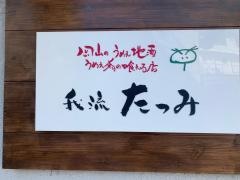 岡山のうめえ地酒
うめえ肴の喰える店
我流 たつみ